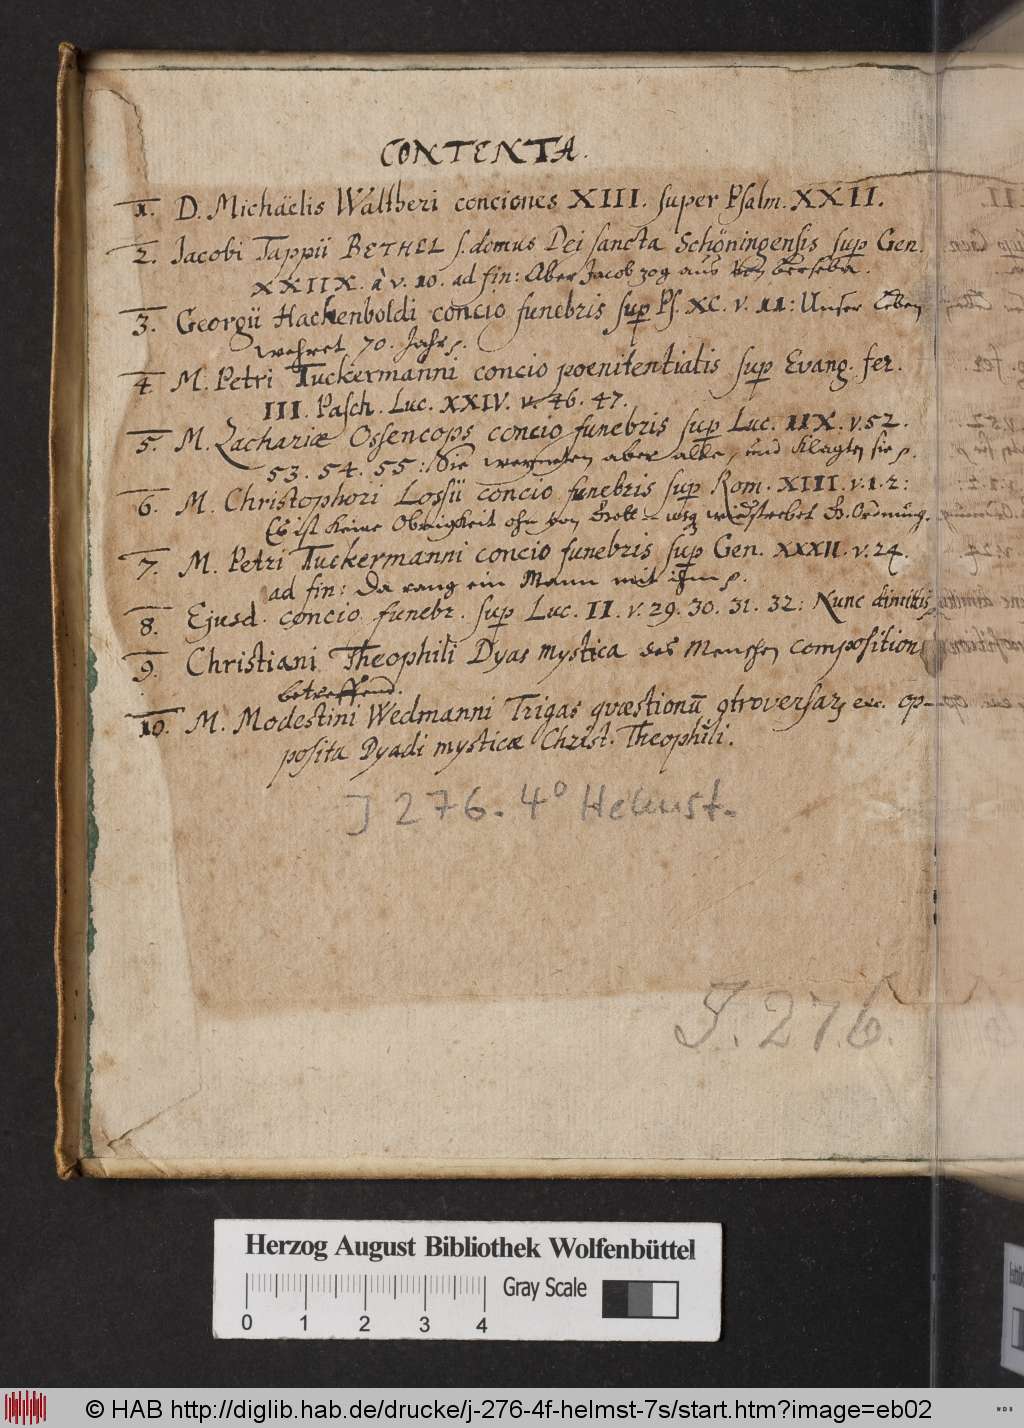 CONTENTA.
1. D. Michäelis Waltheri conciones XIII. super Psalm. XXII.
2. Jacobi Tappii BETHEL s. domus Dei sancta Schöningensis sup Gen.
XXIIX. à v. 10. ad fin: Aber Jacob zog aus von berseba.
3. Georgii Hackenboldi concio funebris sup Ps. XC. v. 11: Unser Leben
wehret 70. Jahr
4. M. Petri Tuckermanni concio poenitentialis sup Evang. fer.
III. Pasch. Luc. XXIV. v. 46. 47.
5. M. Zachariæ Ossencops concio funebris sup Luc. IIX. v. 52.
53. 54. 55: Sie weyneten aber alle, und klagten sie
6. M. Christophori Lossii concio funebris sup Rom. XIII. v. 1. 2:
Es ist keine Obrigkeit ohn von Gott widstrebet G. Ordnung.
7. M. Petri Tuckermanni concio funebris sup Gen. XXXII. v. 24.
ad fin: Da rang ein Mann mit ihm
8. Ejusd. concio funebr. sup Luc. II. v. 29. 30. 31. 32: Nunc dimittis
9. Christiani Theophili Dyas mystica des Menschen composition
betreffend.
10. M. Modestini Wedmanni Trigas quæstionū op-
posita Dyadi mysticæ Christ. Theophili.
J 276. 4° Helmst.
J. 276.
Herzog August Bibliothek Wolfenbüttel
0 1 2 3 4 Gray Scale
© HAB http://diglib.hab.de/drucke/j-276-4f-helmst-7s/start.htm?image=eb02